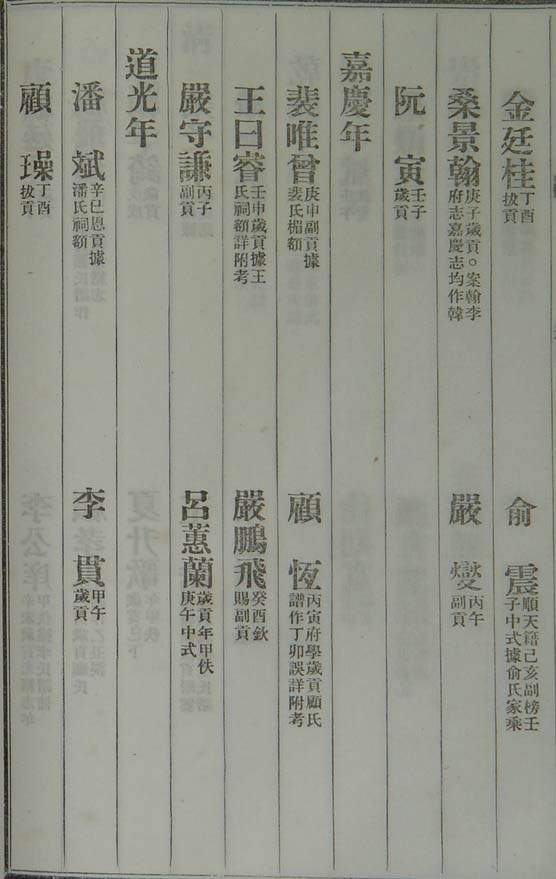 金廷桂 丁酉拔貢 俞震 順天籍己亥副榜壬子中式據俞氏家乘
桑景翰 庚子歲貢○案翰李府志嘉慶志均作韓 嚴燮 丙午副貢
阮寅 壬子歲貢
嘉慶年
裴唯曾 庚申副貢據裴氏楣額 顧恆 丙寅府學歲貢顧氏譜作丁卯誤詳附考
王日睿 壬申歲貢據王氏祠額詳附考 嚴鵬飛 癸酉欽賜副貢
嚴守謙 丙子副貢 呂蕙蘭 歲貢年甲佚庚午中式
道光年
潘斌 辛巳恩貢據潘氏祠額 李貫 甲午歲貢
顧璪 丁酉拔貢